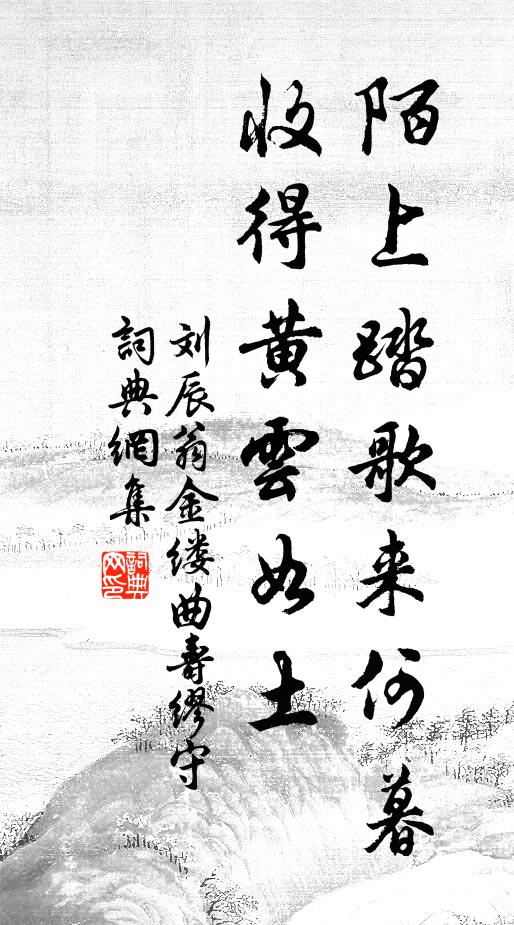 陌上踏歌来何暮
收得黄雲如土
刘辰翁金缕曲壽缪守
詞典網集
詞典网印